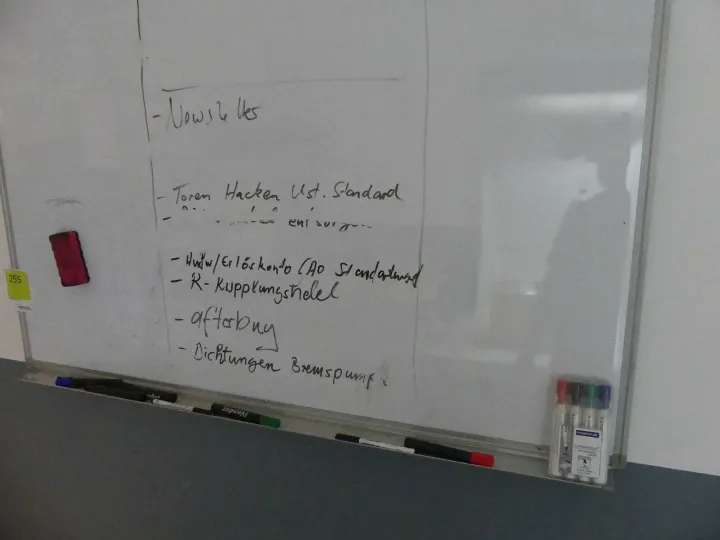 - Newsletter
- Toren Hacken Ust. Standard
- entsorgen
/Erlöskonto (AO Standardwert
- K-Kupplungs
- afterbuy
- Dichtungen Bremspump.
255